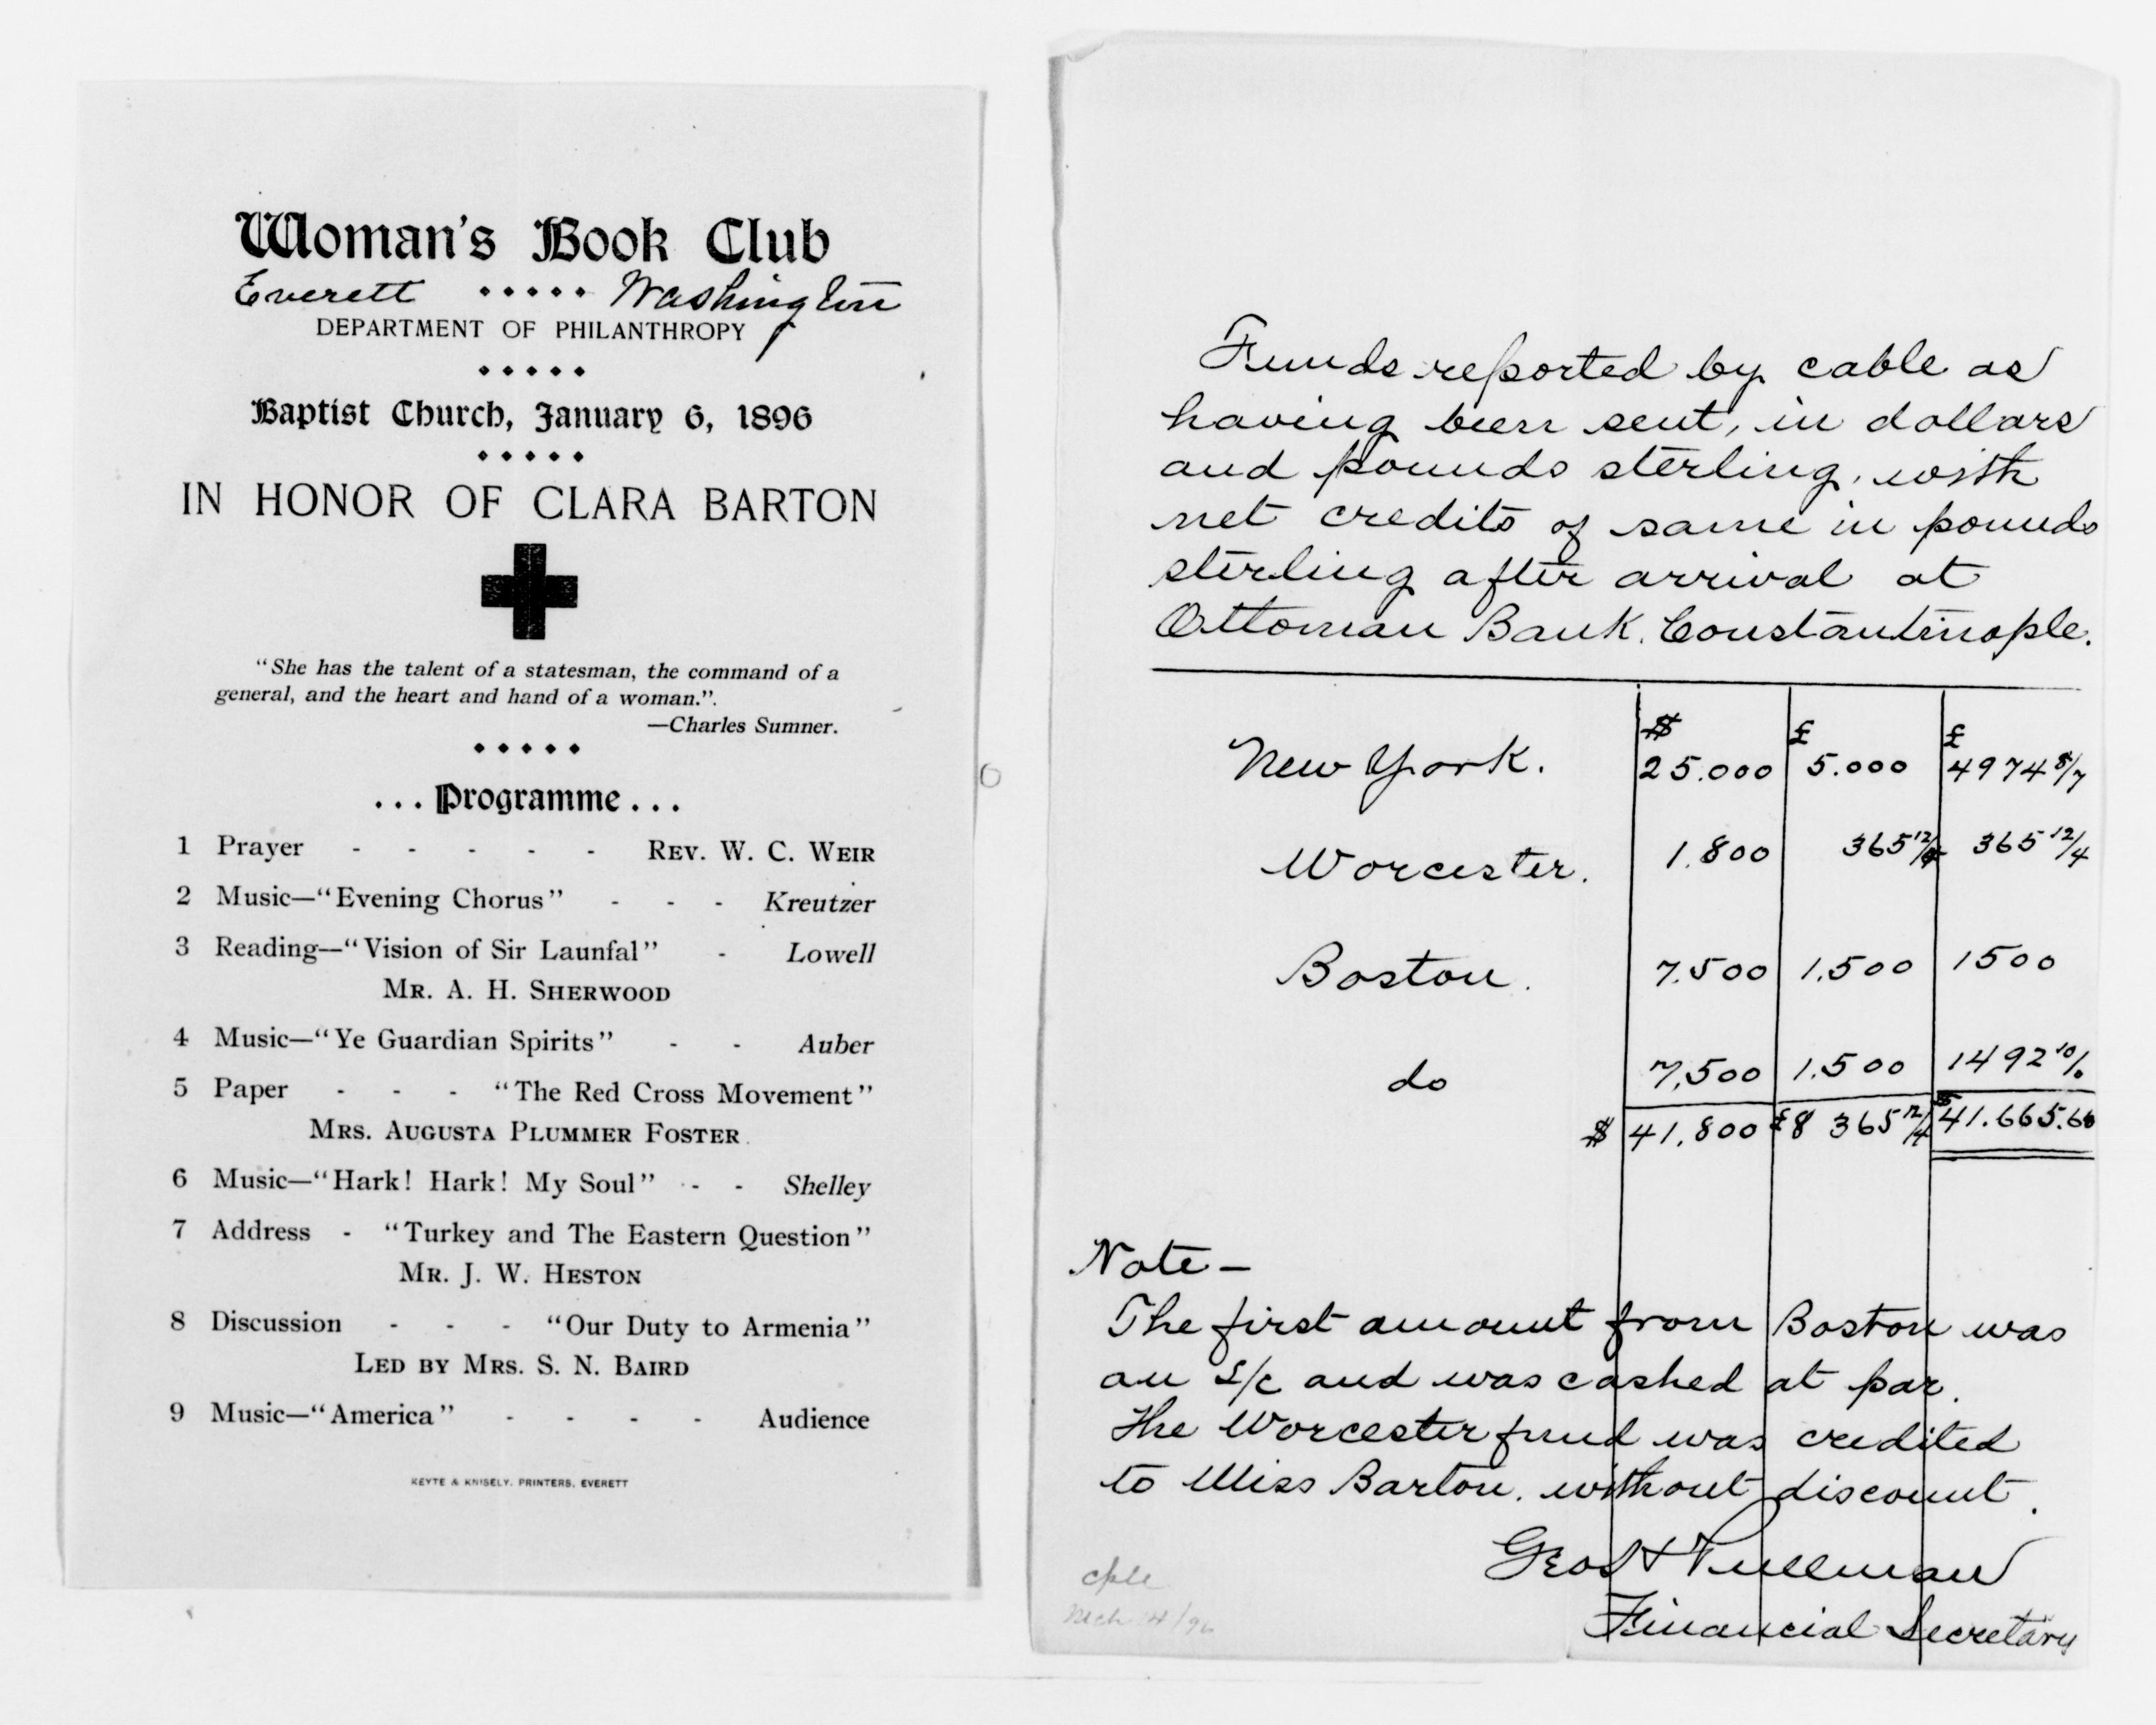 Woman's Book Club
Everett ..... Washington
DEPARTMENT OF PHILANTHROPY
Baptist Church, January 6, 1896
IN HONOR OF CLARA BARTON
"She has the talent of a statesman, the command of a
general, and the heart and hand of a woman.".
—Charles Sumner.
...Programme...
1 Prayer - - - - - REV. W. C. WEIR
2 Music—"Evening Chorus" - - - Kreutzer
3 Reading—"Vision of Sir Launfal" - Lowell
MR. A. H. SHERWOOD
4 Music—"Ye Guardian Spirits" - - Auber
5 Paper - - - "The Red Cross Movement"
MRS. AUGUSTA PLUMMER FOSTER
6 Music—"Hark! Hark! My Soul" - - Shelley
7 Address - "Turkey and The Eastern Question"
MR. J. W. HESTON
8 Discussion - - - "Our Duty to Armenia"
LED BY MRS. S. N. BAIRD
9 Music—"America" - - - - Audience
KEYTE & KNISELY, PRINTERS, EVERETT
Funds reported by cable as
having been sent, in dollars
and pounds sterling, with
net credits of same in pounds
sterling after arrival at
Ottoman Bank. Constantinople.
$ £ £
New York. 25.000 5.000 4974 8/7
Worcester. 1.800 365 12/4 365 12/4
Boston. 7.500 1.500 1500
do 7,500 1.500 1492 10/.
$ 41,800 £8 365 12/4 $41.665.60
Note—
The first amount from Boston was
an L/c and was cashed at par.
The Worcester fund was credited
to Miss Barton. without discount.
Geo H Pullman
Financial Secretary
cple
Mch 4/96